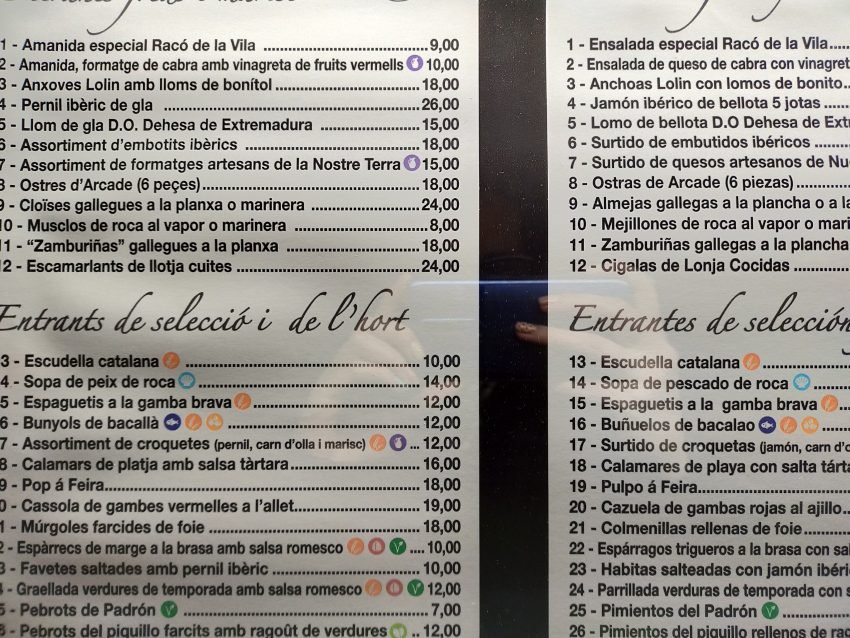 1 - Amanida especial Racó de la Vila ........ 9,00
2 - Amanida, formatge de cabra amb vinagreta de fruits vermells 10,00
3 - Anxoves Lolin amb lloms de bonítol ........ 18,00
4 - Pernil ibèric de gla ........ 26,00
5 - Llom de gla D.O. Dehesa de Extremadura ........ 15,00
6 - Assortiment d'embotits ibèrics ........ 18,00
7 - Assortiment de formatges artesans de la Nostre Terra 15,00
8 - Ostres d'Arcade (6 peçes) ........ 18,00
9 - Cloïses gallegues a la planxa o marinera ........ 24,00
10 - Musclos de roca al vapor o marinera ........ 8,00
11 - "Zamburiñas" gallegues a la planxa ........ 18,00
12 - Escamarlants de llotja cuites ........ 24,00
Entrants de selecció i de l'hort
3 - Escudella catalana ........ 10,00
4 - Sopa de peix de roca ........ 14,00
5 - Espaguetis a la gamba brava ........ 12,00
6 - Bunyols de bacallà ........ 12,00
7 - Assortiment de croquetes (pernil, carn d'olla i marisc) ... 12,00
8 - Calamars de platja amb salsa tàrtara ........ 16,00
9 - Pop á Feira ........ 18,00
0 - Cassola de gambes vermelles a l'allet ........ 19,00
1 - Múrgoles farcides de foie ........ 18,00
2 - Espàrrecs de marge a la brasa amb salsa romesco .... 10,00
3 - Favetes saltades amb pernil ibèric ........ 10,00
4 - Graellada verdures de temporada amb salsa romesco 12,00
5 - Pebrots de Padrón ........ 7,00
6 - Pebrots del piquillo farcits amb ragoût de verdures .. 12,00
1 - Ensalada especial Racó de la Vila.....
2 - Ensalada de queso de cabra con vinagret
3 - Anchoas Lolin con lomos de bonito..
4 - Jamón ibérico de bellota 5 jotas .....
5 - Lomo de bellota D.O Dehesa de Ext
6 - Surtido de embutidos ibéricos ........
7 - Surtido de quesos artesanos de Nu
8 - Ostras de Arcade (6 piezas) ........
9 - Almejas gallegas a la plancha o a la
10 - Mejillones de roca al vapor o mari
11 - Zamburiñas gallegas a la plancha
12 - Cigalas de Lonja Cocidas ........
Entrantes de selección
13 - Escudella catalana ........
14 - Sopa de pescado de roca ........
15 - Espaguetis a la gamba brava ...
16 - Buñuelos de bacalao ....
17 - Surtido de croquetas (jamón, carn d'o
18 - Calamares de playa con salta tárta
19 - Pulpo á Feira ........
20 - Cazuela de gambas rojas al ajillo...
21 - Colmenillas rellenas de foie ........
22 - Espárragos trigueros a la brasa con sal
23 - Habitas salteadas con jamón ibéri
24 - Parrillada verduras de temporada con s
25 - Pimientos del Padrón ........
26 - Pimientos del piquillo rellenos de rag